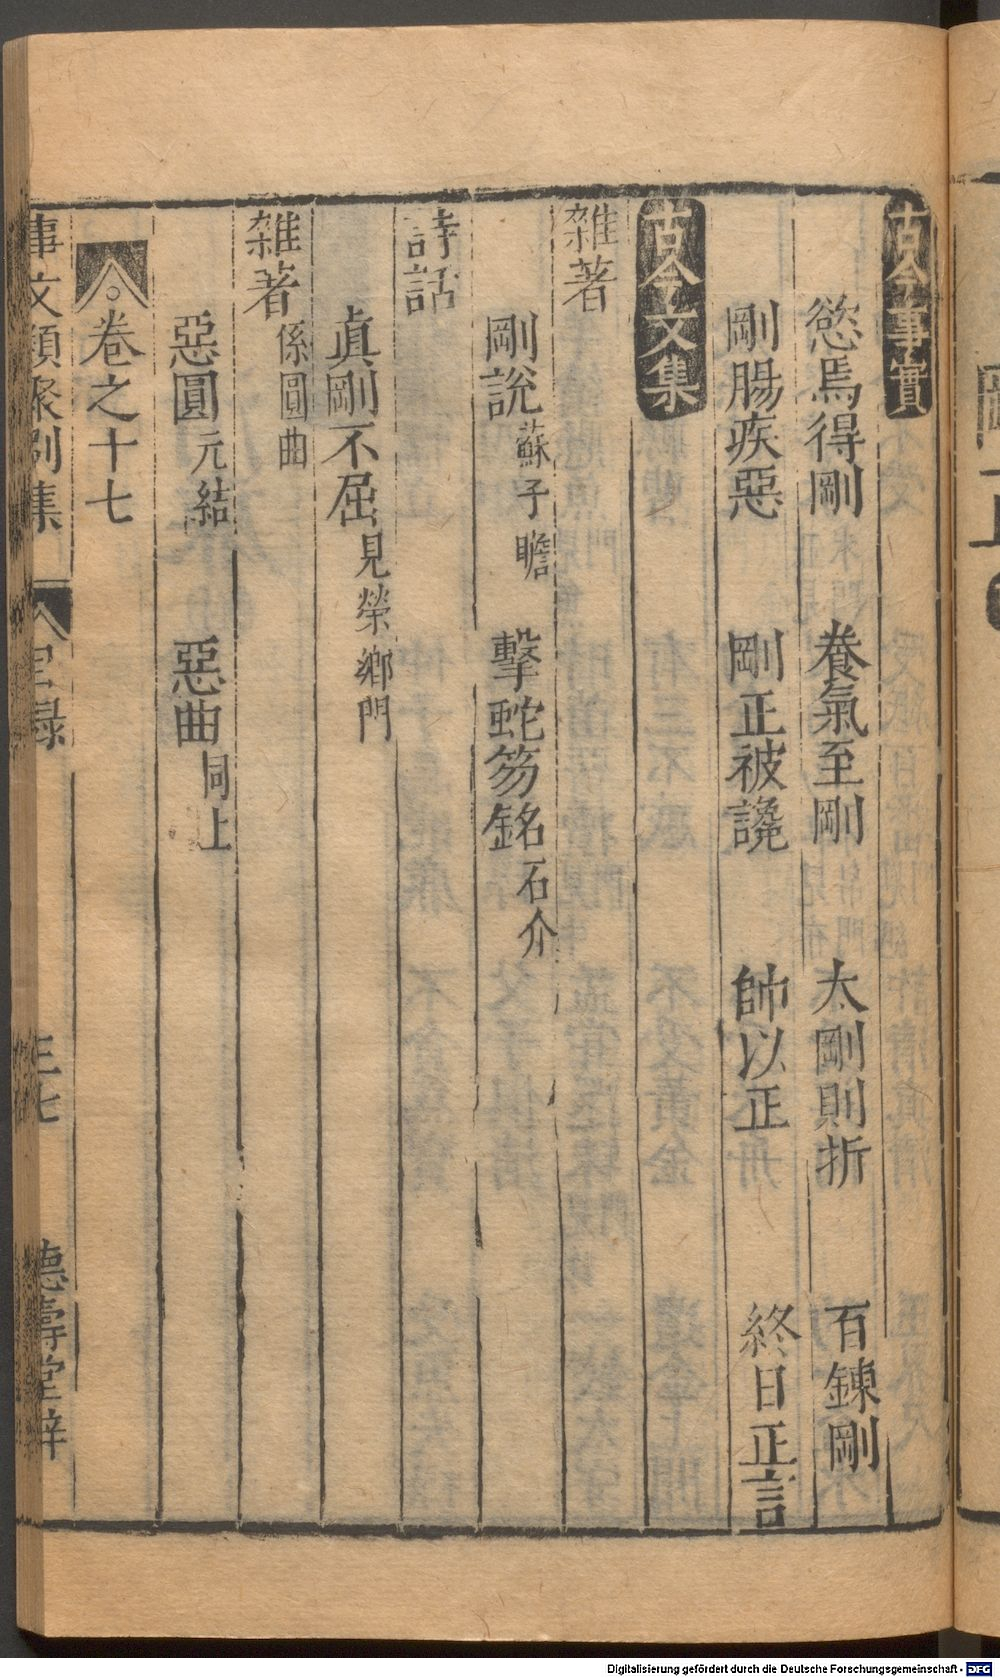 古今事實
慾焉得剛 養氣至剛 太剛則折 百鍊剛
剛腸疾惡 剛正被讒 帥以正 終日正言
古今文集
雜著
剛說 蘇子瞻 擊蛇笏銘 石介
詩話
眞剛不屈 見榮鄉門
雜著 係圓曲
惡圓 元結 惡曲 同上
卷之十七
事文類聚別集 目録 三七 德壽堂梓
Digitalisierung gefördert durch die Deutsche Forschungsgemeinschaft - DFG